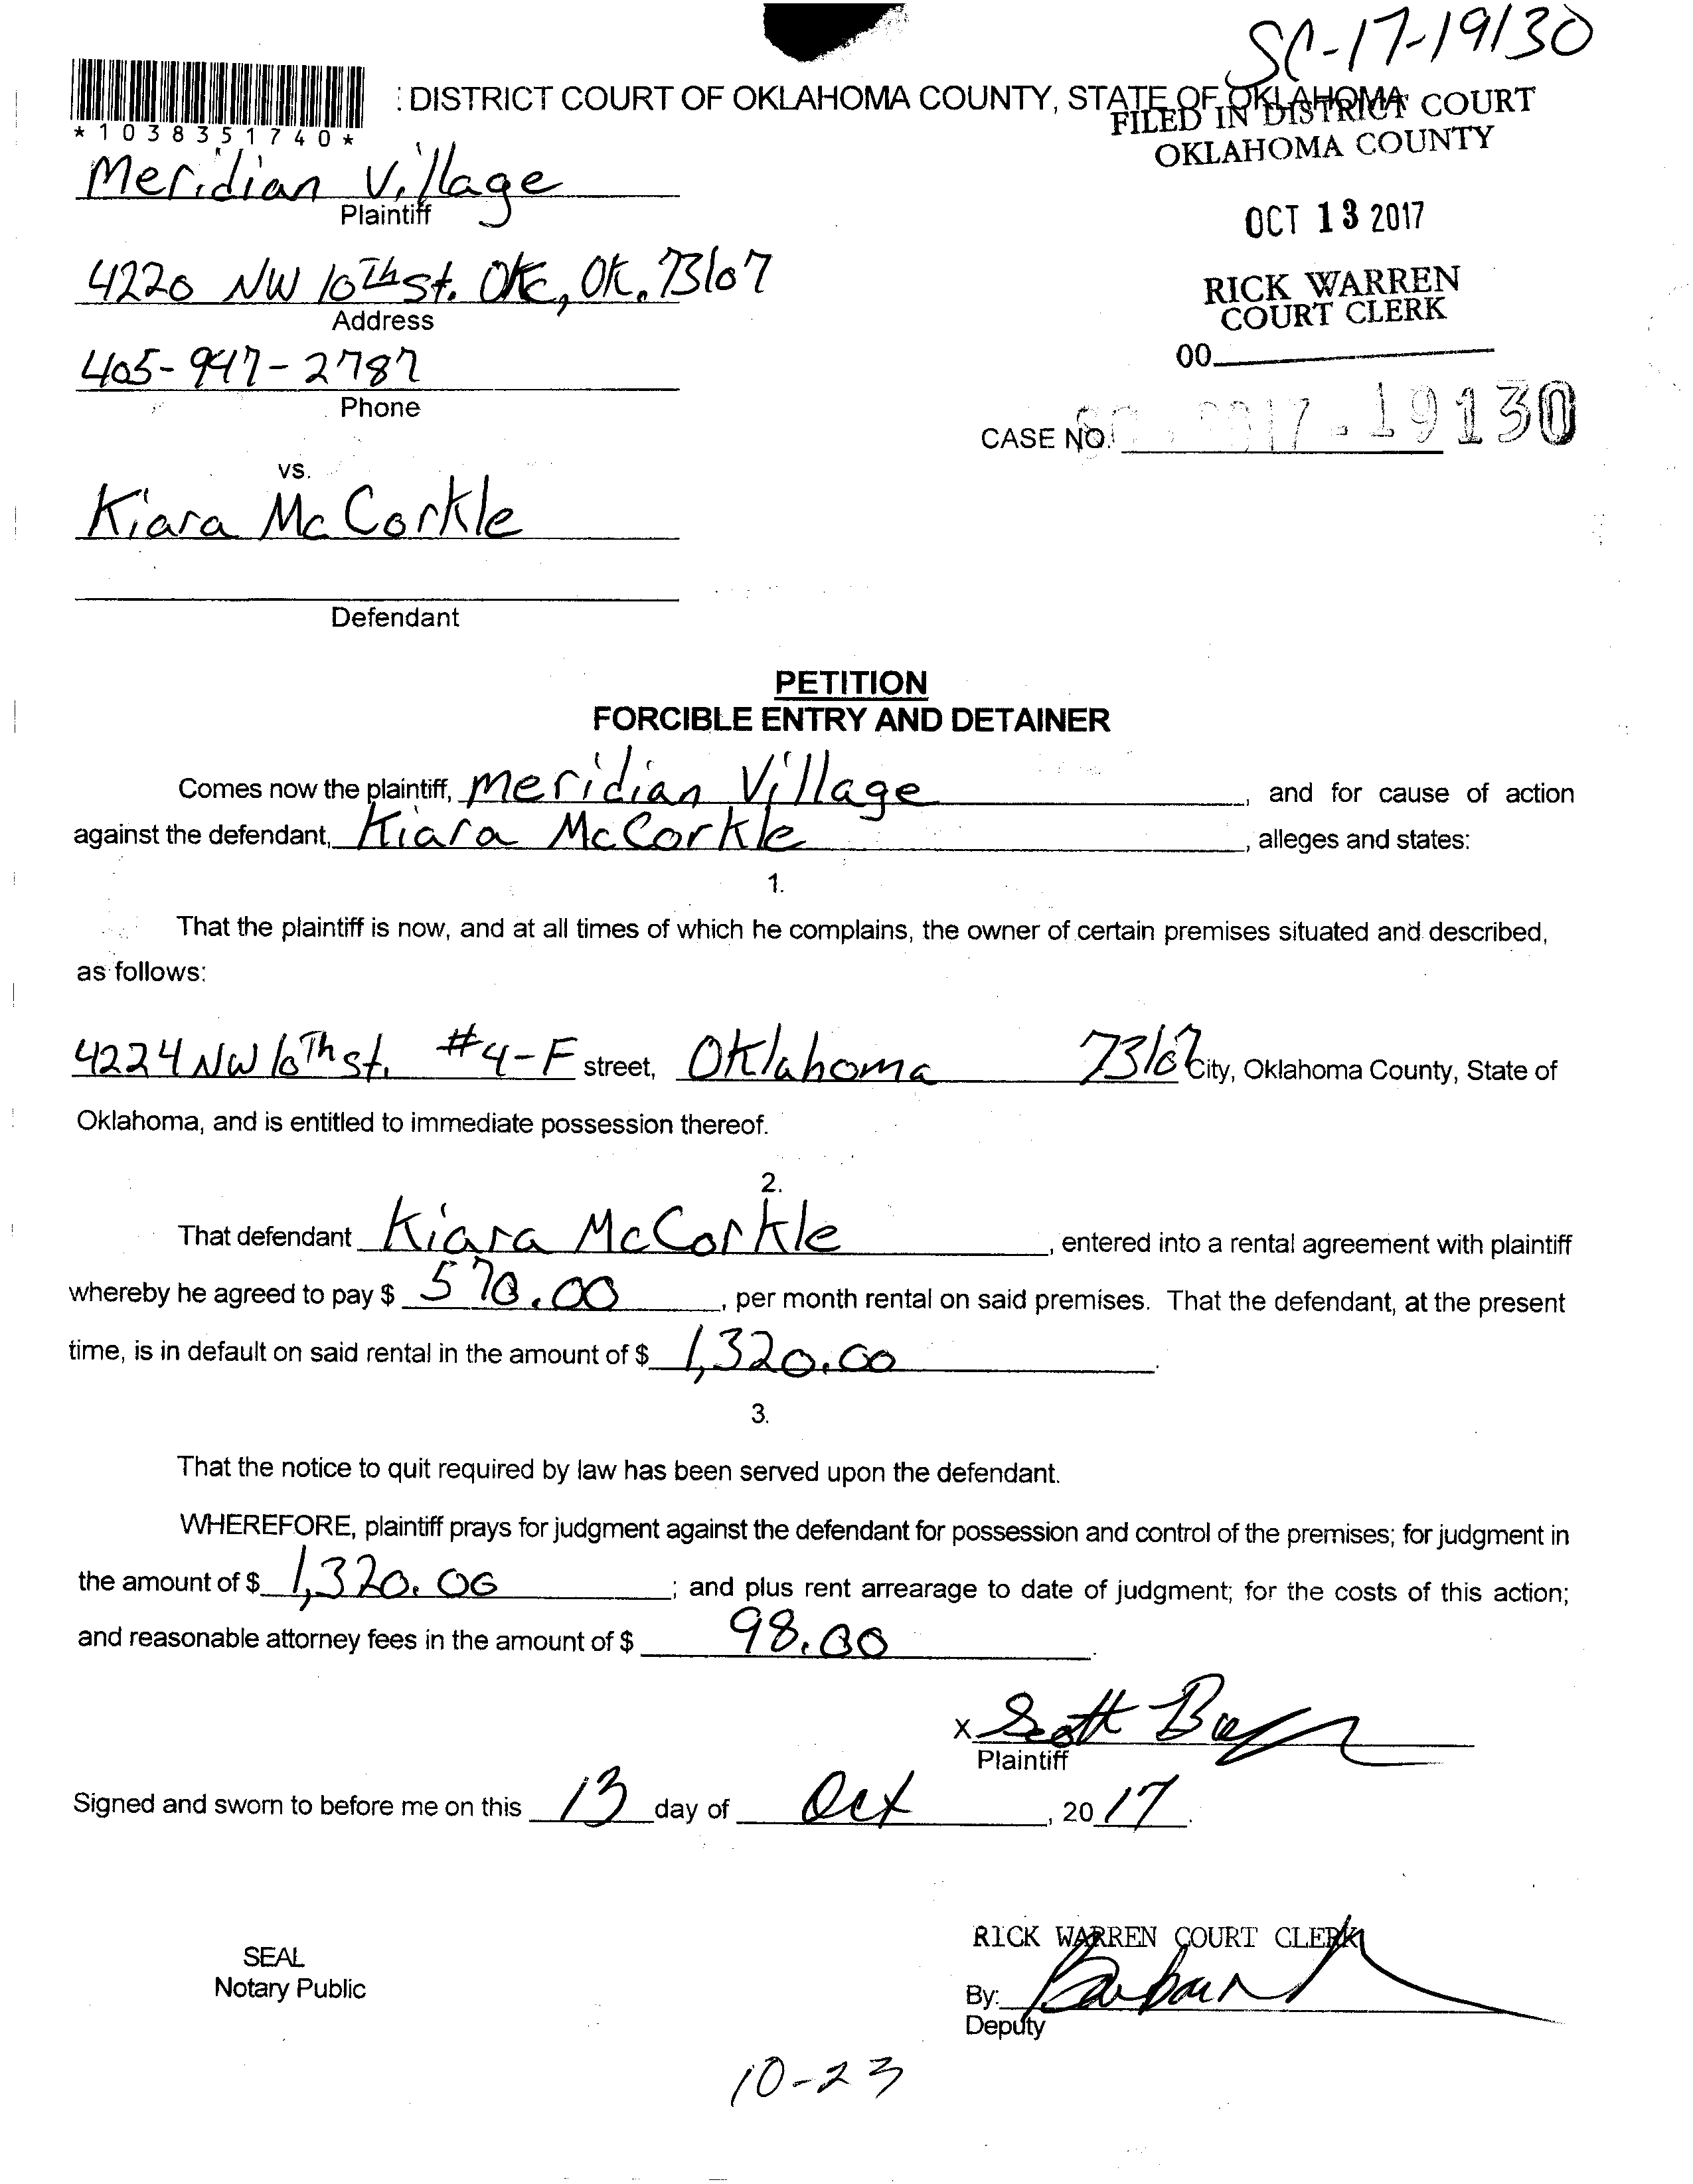 SC-17-19130
: DISTRICT COURT OF OKLAHOMA COUNTY, STATE OF OKLAHOMA
*1038351740*
FILED IN DISTRICT COURT
OKLAHOMA COUNTY
Meridian Village
Plaintiff
OCT 13 2017
4220 NW 10th St. OKC, OK. 73107
Address
RICK WARREN
COURT CLERK
00
405-947-2787
Phone
CASE NO. SC 2017-19130
vs.
Kiara McCorkle
Defendant
PETITION
FORCIBLE ENTRY AND DETAINER
Comes now the plaintiff, Meridian Village, and for cause of action
against the defendant, Kiara McCorkle, alleges and states:
1.
That the plaintiff is now, and at all times of which he complains, the owner of certain premises situated and described,
as follows:
4224 NW 10Th st. #4-F street, Oklahoma 73107 City, Oklahoma County, State of
Oklahoma, and is entitled to immediate possession thereof.
2.
That defendant Kiara McCorkle, entered into a rental agreement with plaintiff
whereby he agreed to pay $ 570.00, per month rental on said premises. That the defendant, at the present
time, is in default on said rental in the amount of $ 1,320.00.
3.
That the notice to quit required by law has been served upon the defendant.
WHEREFORE, plaintiff prays for judgment against the defendant for possession and control of the premises; for judgment in
the amount of $ 1,320.00; and plus rent arrearage to date of judgment; for the costs of this action;
and reasonable attorney fees in the amount of $ 98.00.
X Scott
Plaintiff
Signed and sworn to before me on this 13 day of Oct, 20 17.
RICK WARREN COURT CLERK
SEAL
Notary Public
By:
Deputy
10-23